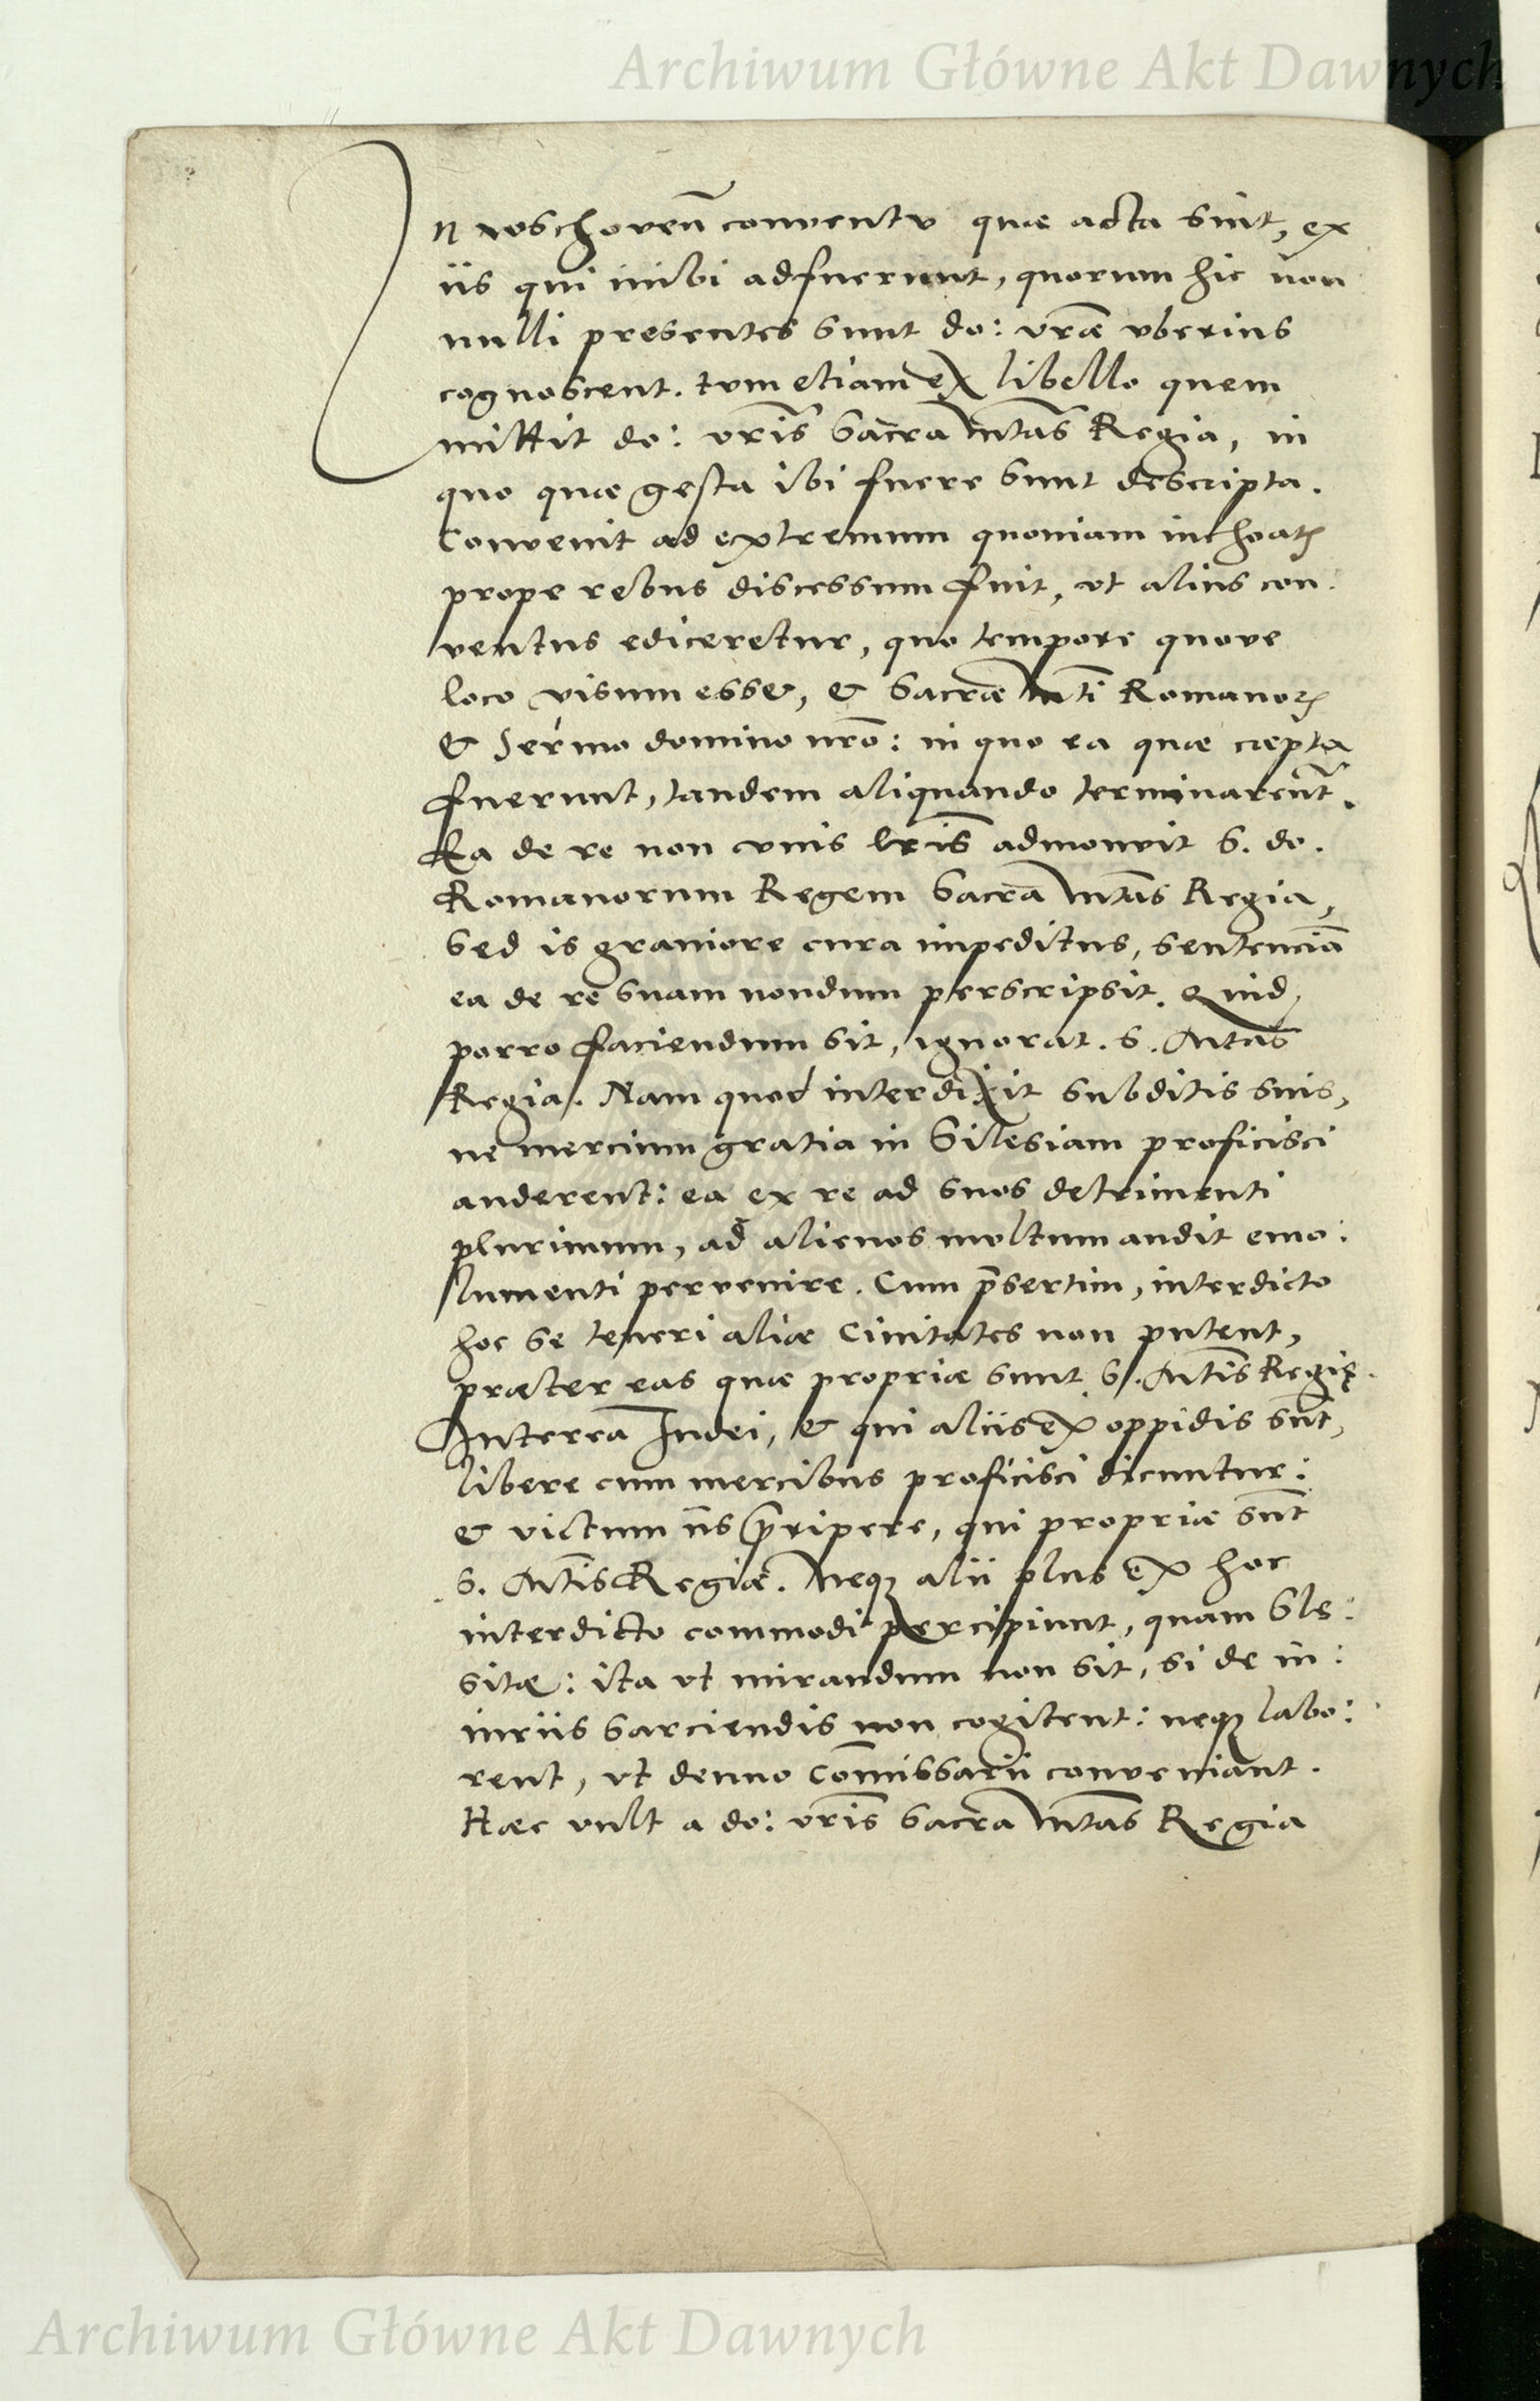 Archiwum Główne Akt Dawnych
In Woschoveñ conventu quæ acta sint, ex
iis qui inibi adfuerunt, quorum hic non
nulli presentes sunt do: vrãe vberius
cognoscent. tum etiam ex libello quem
mittit do: vrīs Sacra Mtas Regia, in
quo quæ gesta ibi fuere sunt descripta.
Convenit ad extremum quoniam inchoatꝭ
prope rebus discessum fuit, vt alius con:
ventus ediceretur, quo tempore quove
loco visum esset, & Sacræ Mti Romanorꝝ
& Sermo domino nrõ: in quo ea quæ cæpta
fuerunt, tandem aliquando terminarent̃.
Ea de re non vnis lr̃is admonuit S. do.
Romanorum Regem Sacra Mtas Regia,
Sed is graviore cura impeditus, sentenciã
ea de re suam nondum perscripsit. Quid
porro faciendum sit, ignorat. S. Mtas
Regia. Nam quod interdixit subditis suis,
ne mercium gratia in Silesiam proficisci
auderent: ea ex re ad suos detrimenti
plurimum, ad alienos moltum audit emo:
lumenti pervenire. Cum p̃sertim, interdicto
hoc se teneri aliæ Civitates non putent,
præter eas quæ propriæ sunt S. Mtis Regię.
Interea Iudei, & qui aliis ex oppidis sũt,
libere cum mercibus proficisci dicuntur:
& victum iis p̃ripere, qui propriæ sũt
S. Mtis Regiæ. Neqꝫ alii plus ex hoc
interdicto commodi percipiunt, quam Sle:
sitæ: ita vt mirandum non sit, si de in:
iuriis sarciendis non cogitent: neqꝫ labo:
rent, vt denuo Cõmissarii conveniant.
Hæc vult a do: vrĩs Sacra Mtas Regia
Archiwum Główne Akt Dawnych